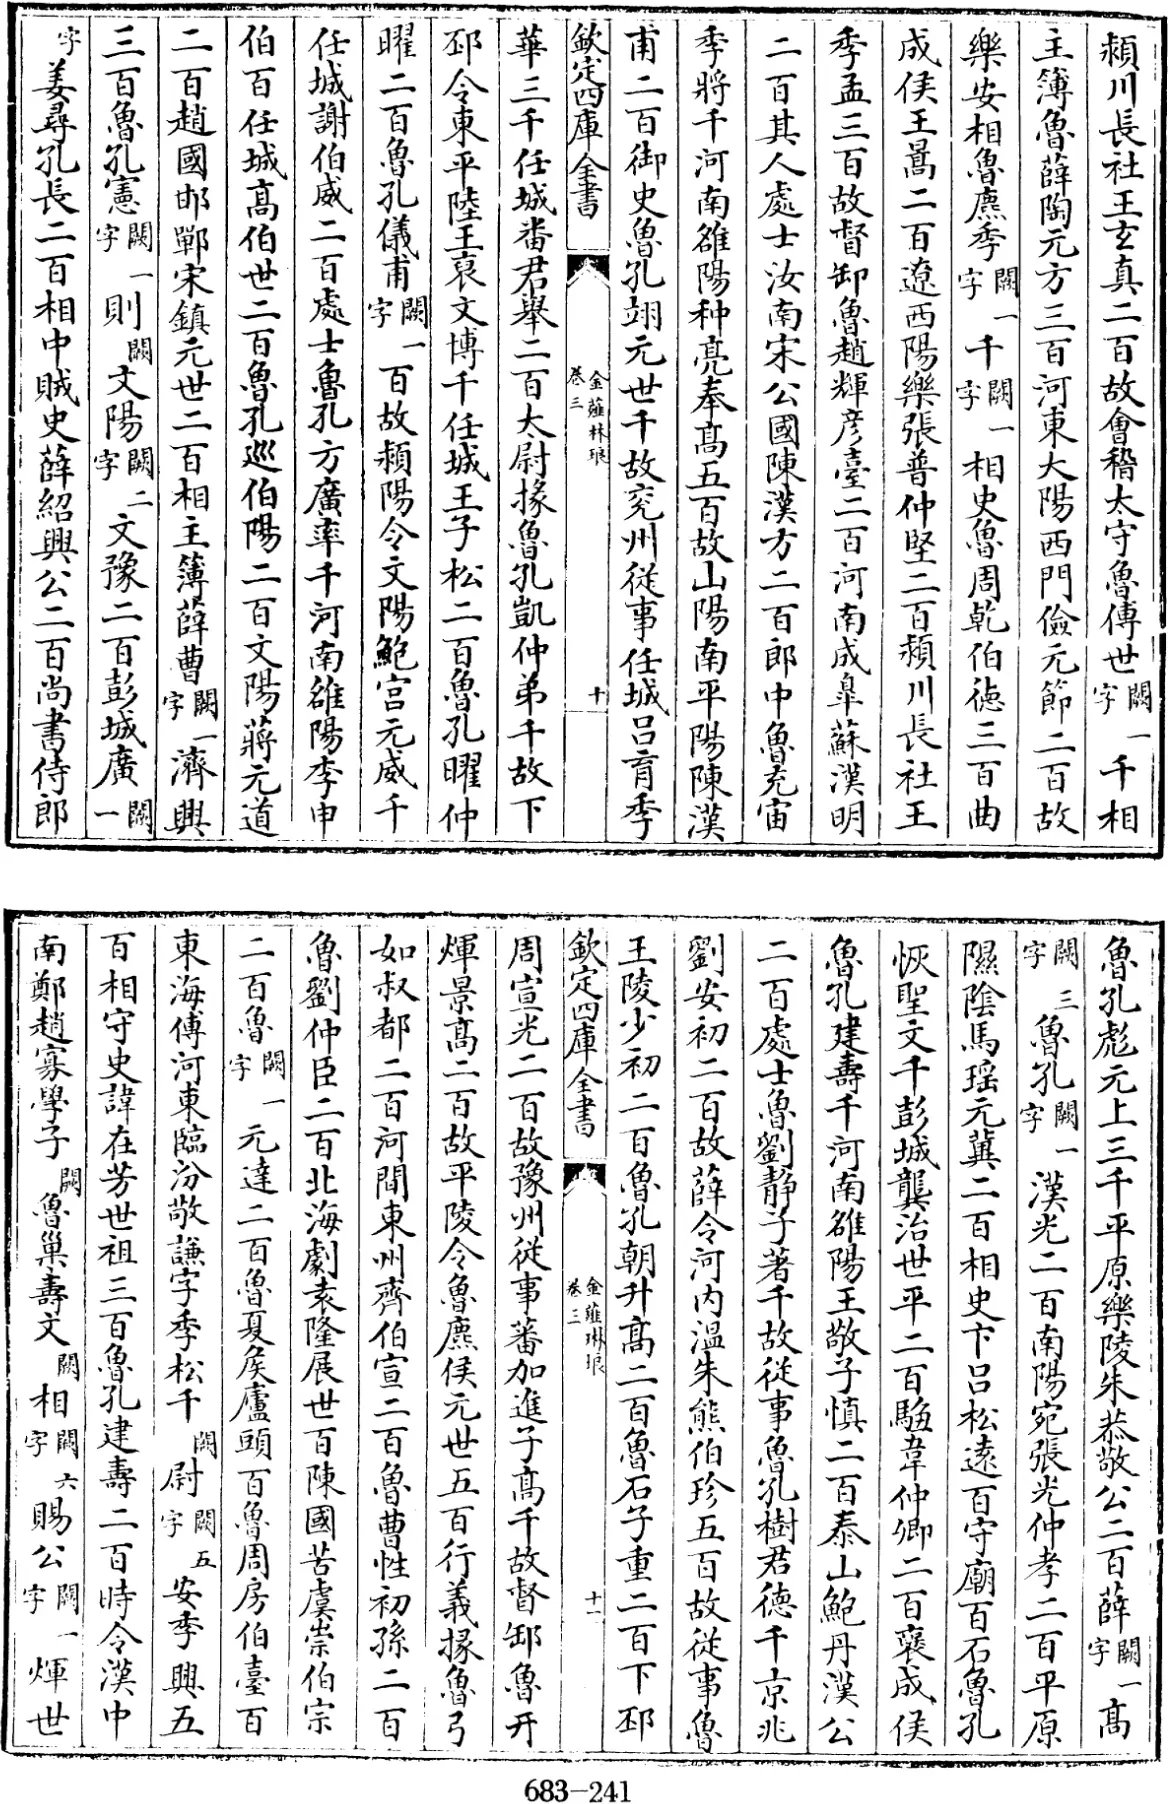 頴川長社王玄真二百故會稽太守魯傅世闕一字千相
主簿魯薛陶元方三百河東大陽西門儉元節二百故
樂安相魯麃季闕一字千闕一字相史魯周乾伯徳三百曲
成侯王暠二百遼西陽樂張普仲堅二百頴川長社王
季孟三百故督郵魯趙輝彦臺二百河南成臯蘇漢明
二百其人處士汝南宋公國陳漢方二百郎中魯充宙
季將千河南雒陽种亮奉髙五百故山陽南平陽陳漢
甫二百御史魯孔翊元世千故兖州從事任城吕育季
欽定四庫全書
金薤林琅
卷三
十
華三千任城畨君舉二百大尉掾魯孔凱仲弟千故下
邳令東平陸王裒文博千任城王子松二百魯孔曜仲
曜二百魯孔儀甫闕一字百故頴陽令文陽鮑宫元威千
任城謝伯威二百處士魯孔方廣率千河南雒陽李申
伯百任城髙伯世二百魯孔廵伯陽二百文陽蔣元道
二百趙國邯鄲宋鎮元世二百相主簿薛曹闕一字濟興
三百魯孔憲闕一字則闕文陽闕二字文豫二百彭城廣闕一
字姜尋孔長二百相中賊史薛紹興公二百尚書侍郎
魯孔彪元上三千平原樂陵朱恭敬公二百薛闕一字髙
闕三字魯孔闕一字漢光二百南陽宛張光仲孝二百平原
隰隂馬瑶元冀二百相史卞吕松逺百守廟百石魯孔
恢聖文千彭城龔治世平二百騶韋仲卿二百襃成侯
魯孔建壽千河南雒陽王敬子慎二百泰山鮑丹漢公
二百處士魯劉静子著千故從事魯孔樹君徳千京兆
劉安初二百故薛令河内温朱熊伯珍五百故從事魯
王陵少初二百魯孔朝升髙二百魯石子重二百下邳
欽定四庫全書
金薤琳琅
卷三
十一
周宣光二百故豫州從事蕃加進子髙千故督郵魯开
煇景髙二百故平陵令魯麃侯元世五百行義掾魯弓
如叔都二百河間東州齊伯宣二百魯曹性初孫二百
魯劉仲臣二百北海劇袁隆展世百陳國苦虞崇伯宗
二百魯闕一字元達二百魯夏侯廬頭百魯周房伯臺百
東海傅河東臨汾敬謙字季松千闕尉闕五字安季興五
百相守史諱在芳世祖三百魯孔建壽二百時令漢中
南鄭趙寡學子闕魯巢壽文闕相闕六字賜公闕一字煇世
683-241